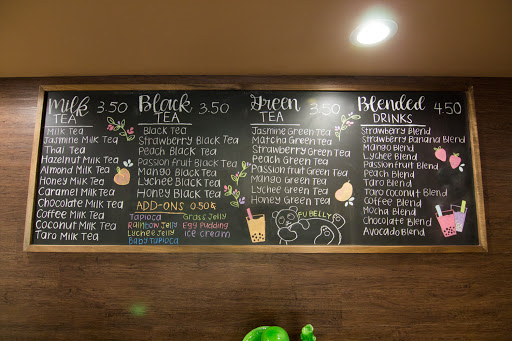 Milk 3.50
TEA
Milk Tea
Jasmine Milk Tea
Thai Tea
Hazelnut Milk Tea
Almond Milk Tea
Honey Milk Tea
Caramel Milk Tea
Chocolate Milk Tea
Coffee Milk Tea
Coconut Milk Tea
Taro Milk Tea
Black 3.50
TEA
Black Tea
Strawberry Black Tea
Peach Black Tea
Passion fruit Black Tea
Mango Black Tea
Lychee Black Tea
Honey Black Tea
ADD-ONS 0.50¢
Tapioca
Rainbow Jelly
Lychee Jelly
Baby Tapioca
Grass Jelly
Egg Pudding
Ice cream
Green 3.50
TEA
Jasmine Green Tea
Matcha Green Tea
Strawberry Green Tea
Peach Green Tea
Passion fruit Green Tea
Mango Green Tea
Lychee Green Tea
Honey Green Tea
FU BELLY
Blended 4.50
DRINKS
Strawberry Blend
Strawberry Banana Blend
Mango Blend
Lychee Blend
Passion fruit Blend
Peach Blend
Taro Blend
Taro Coconut Blend
Coffee Blend
Mocha Blend
Chocolate Blend
Avocado Blend